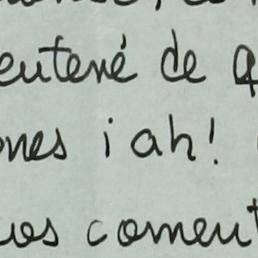 euteré de q
ones ¡ah!
uos coment